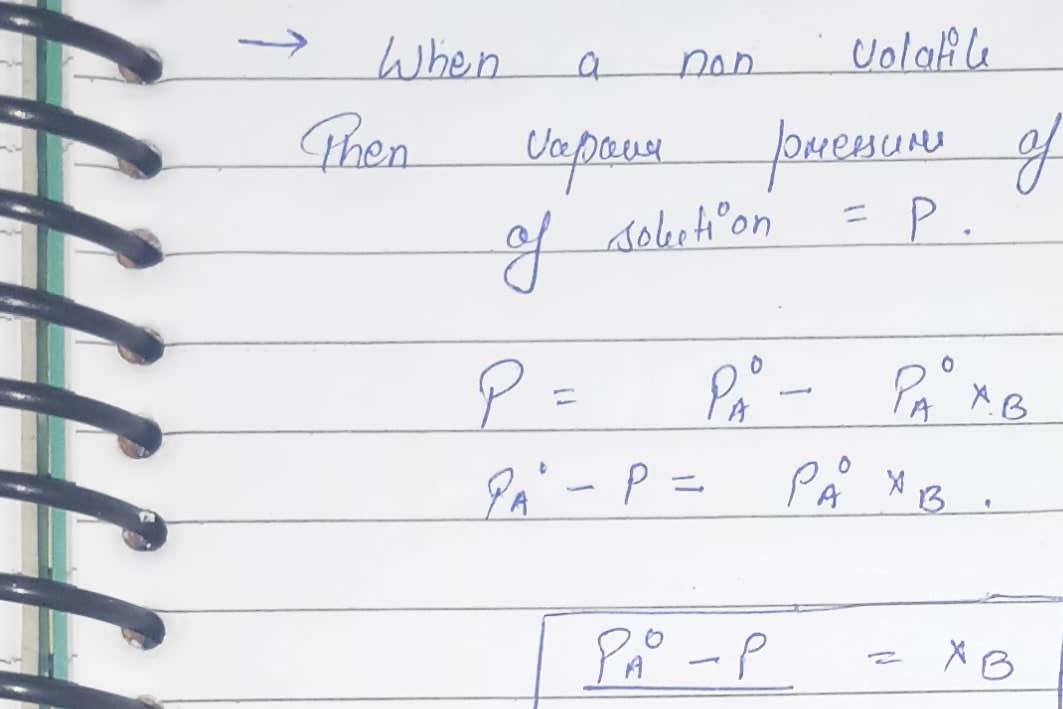 → When a non volatile
Then vapour pressure of
of solution = P.
P = P_A° - P_A° x_B
P_A° - P = P_A° x_B.
P_A° - P = x_B